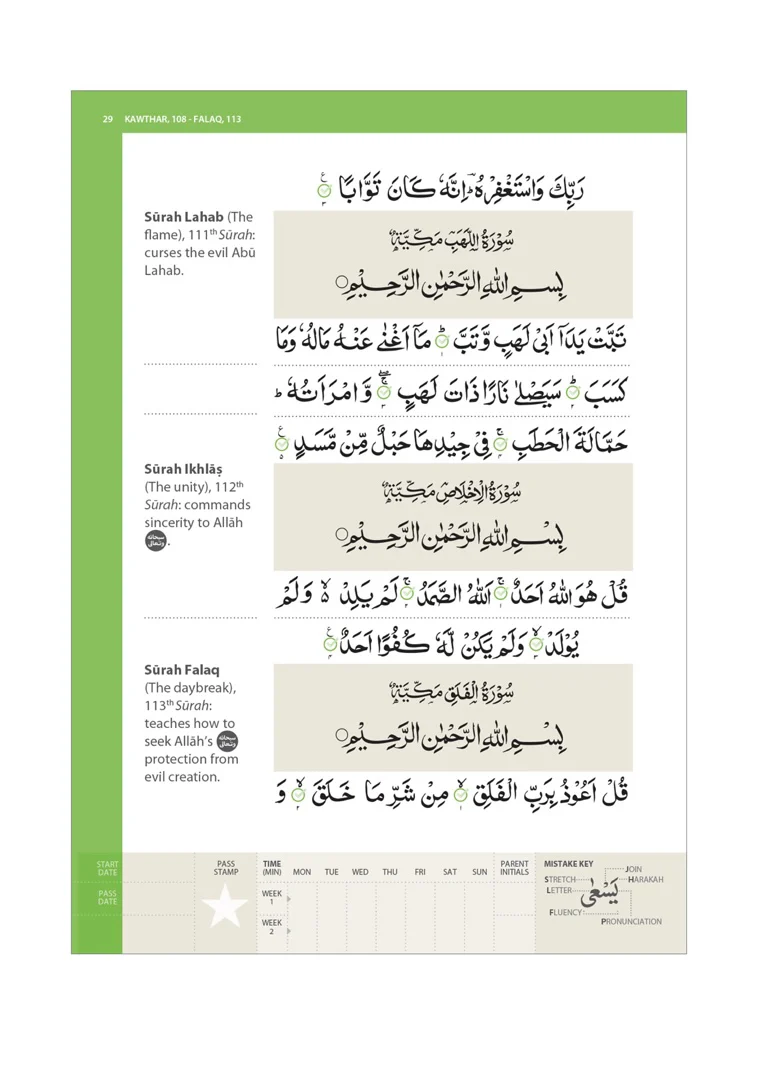 29 KAWTHAR, 108 - FALAQ, 113
رَبِّكَ وَاسْتَغْفِرْهُ ؕ اِنَّهٗ كَانَ تَوَّابًا
Sūrah Lahab (The
flame), 111th Sūrah:
curses the evil Abū
Lahab.
سُوْرَةُ اللَّهَبِ مَكِّيَّةٌ
بِسْمِ اللّٰهِ الرَّحْمٰنِ الرَّحِيْمِ
تَبَّتْ يَدَاۤ اَبِىْ لَهَبٍ وَّتَبَّ ؕ مَاۤ اَغْنٰى عَنْهُ مَالُهٗ وَمَا
كَسَبَ ؕ سَيَصْلٰى نَارًا ذَاتَ لَهَبٍ وَّامْرَاَتُهٗ ؕ
حَمَّالَةَ الْحَطَبِ فِىْ جِيْدِهَا حَبْلٌ مِّنْ مَّسَدٍ
Sūrah Ikhlāṣ
(The unity), 112th
Sūrah: commands
sincerity to Allāh
سبحانه وتعالى.
سُوْرَةُ الْاِخْلَاصِ مَكِّيَّةٌ
بِسْمِ اللّٰهِ الرَّحْمٰنِ الرَّحِيْمِ
قُلْ هُوَ اللّٰهُ اَحَدٌ اَللّٰهُ الصَّمَدُ لَمْ يَلِدْ ۙ وَلَمْ
يُوْلَدْ وَلَمْ يَكُنْ لَّهٗ كُفُوًا اَحَدٌ
Sūrah Falaq
(The daybreak),
113th Sūrah:
teaches how to
seek Allāh's سبحانه وتعالى
protection from
evil creation.
سُوْرَةُ الْفَلَقِ مَكِّيَّةٌ
بِسْمِ اللّٰهِ الرَّحْمٰنِ الرَّحِيْمِ
قُلْ اَعُوْذُ بِرَبِّ الْفَلَقِ مِنْ شَرِّ مَا خَلَقَ وَ
START DATE
PASS DATE
PASS STAMP
TIME (MIN) MON TUE WED THU FRI SAT SUN PARENT INITIALS
WEEK 1
WEEK 2
MISTAKE KEY
JOIN
STRETCH
HARAKAH
LETTER
يَسْعٰى
FLUENCY
PRONUNCIATION